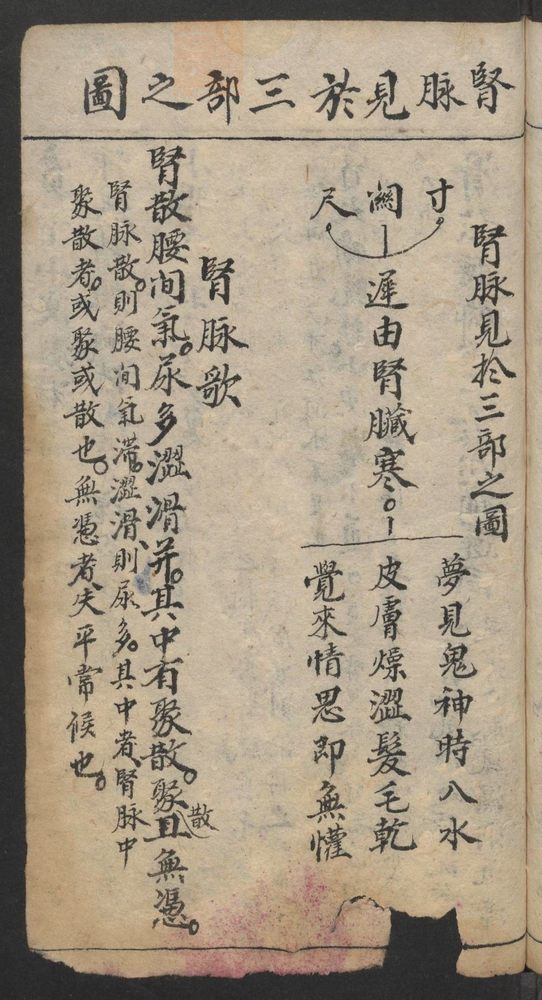 腎脉見於三部之圖
腎脉見於三部之圖
寸
關
尺
遲由腎臟寒。
夢見鬼神時八水
皮膚燥澀髮毛乾
覺來情思即無懽
腎脉歌
腎散腰间氣。尿多澀滑并。其中有聚散。聚散且無憑。
腎脉散。則腰间氣滞。澀滑、則尿多。其中者、腎脉中
聚散者。或聚或散也。無憑者、失平常候也。